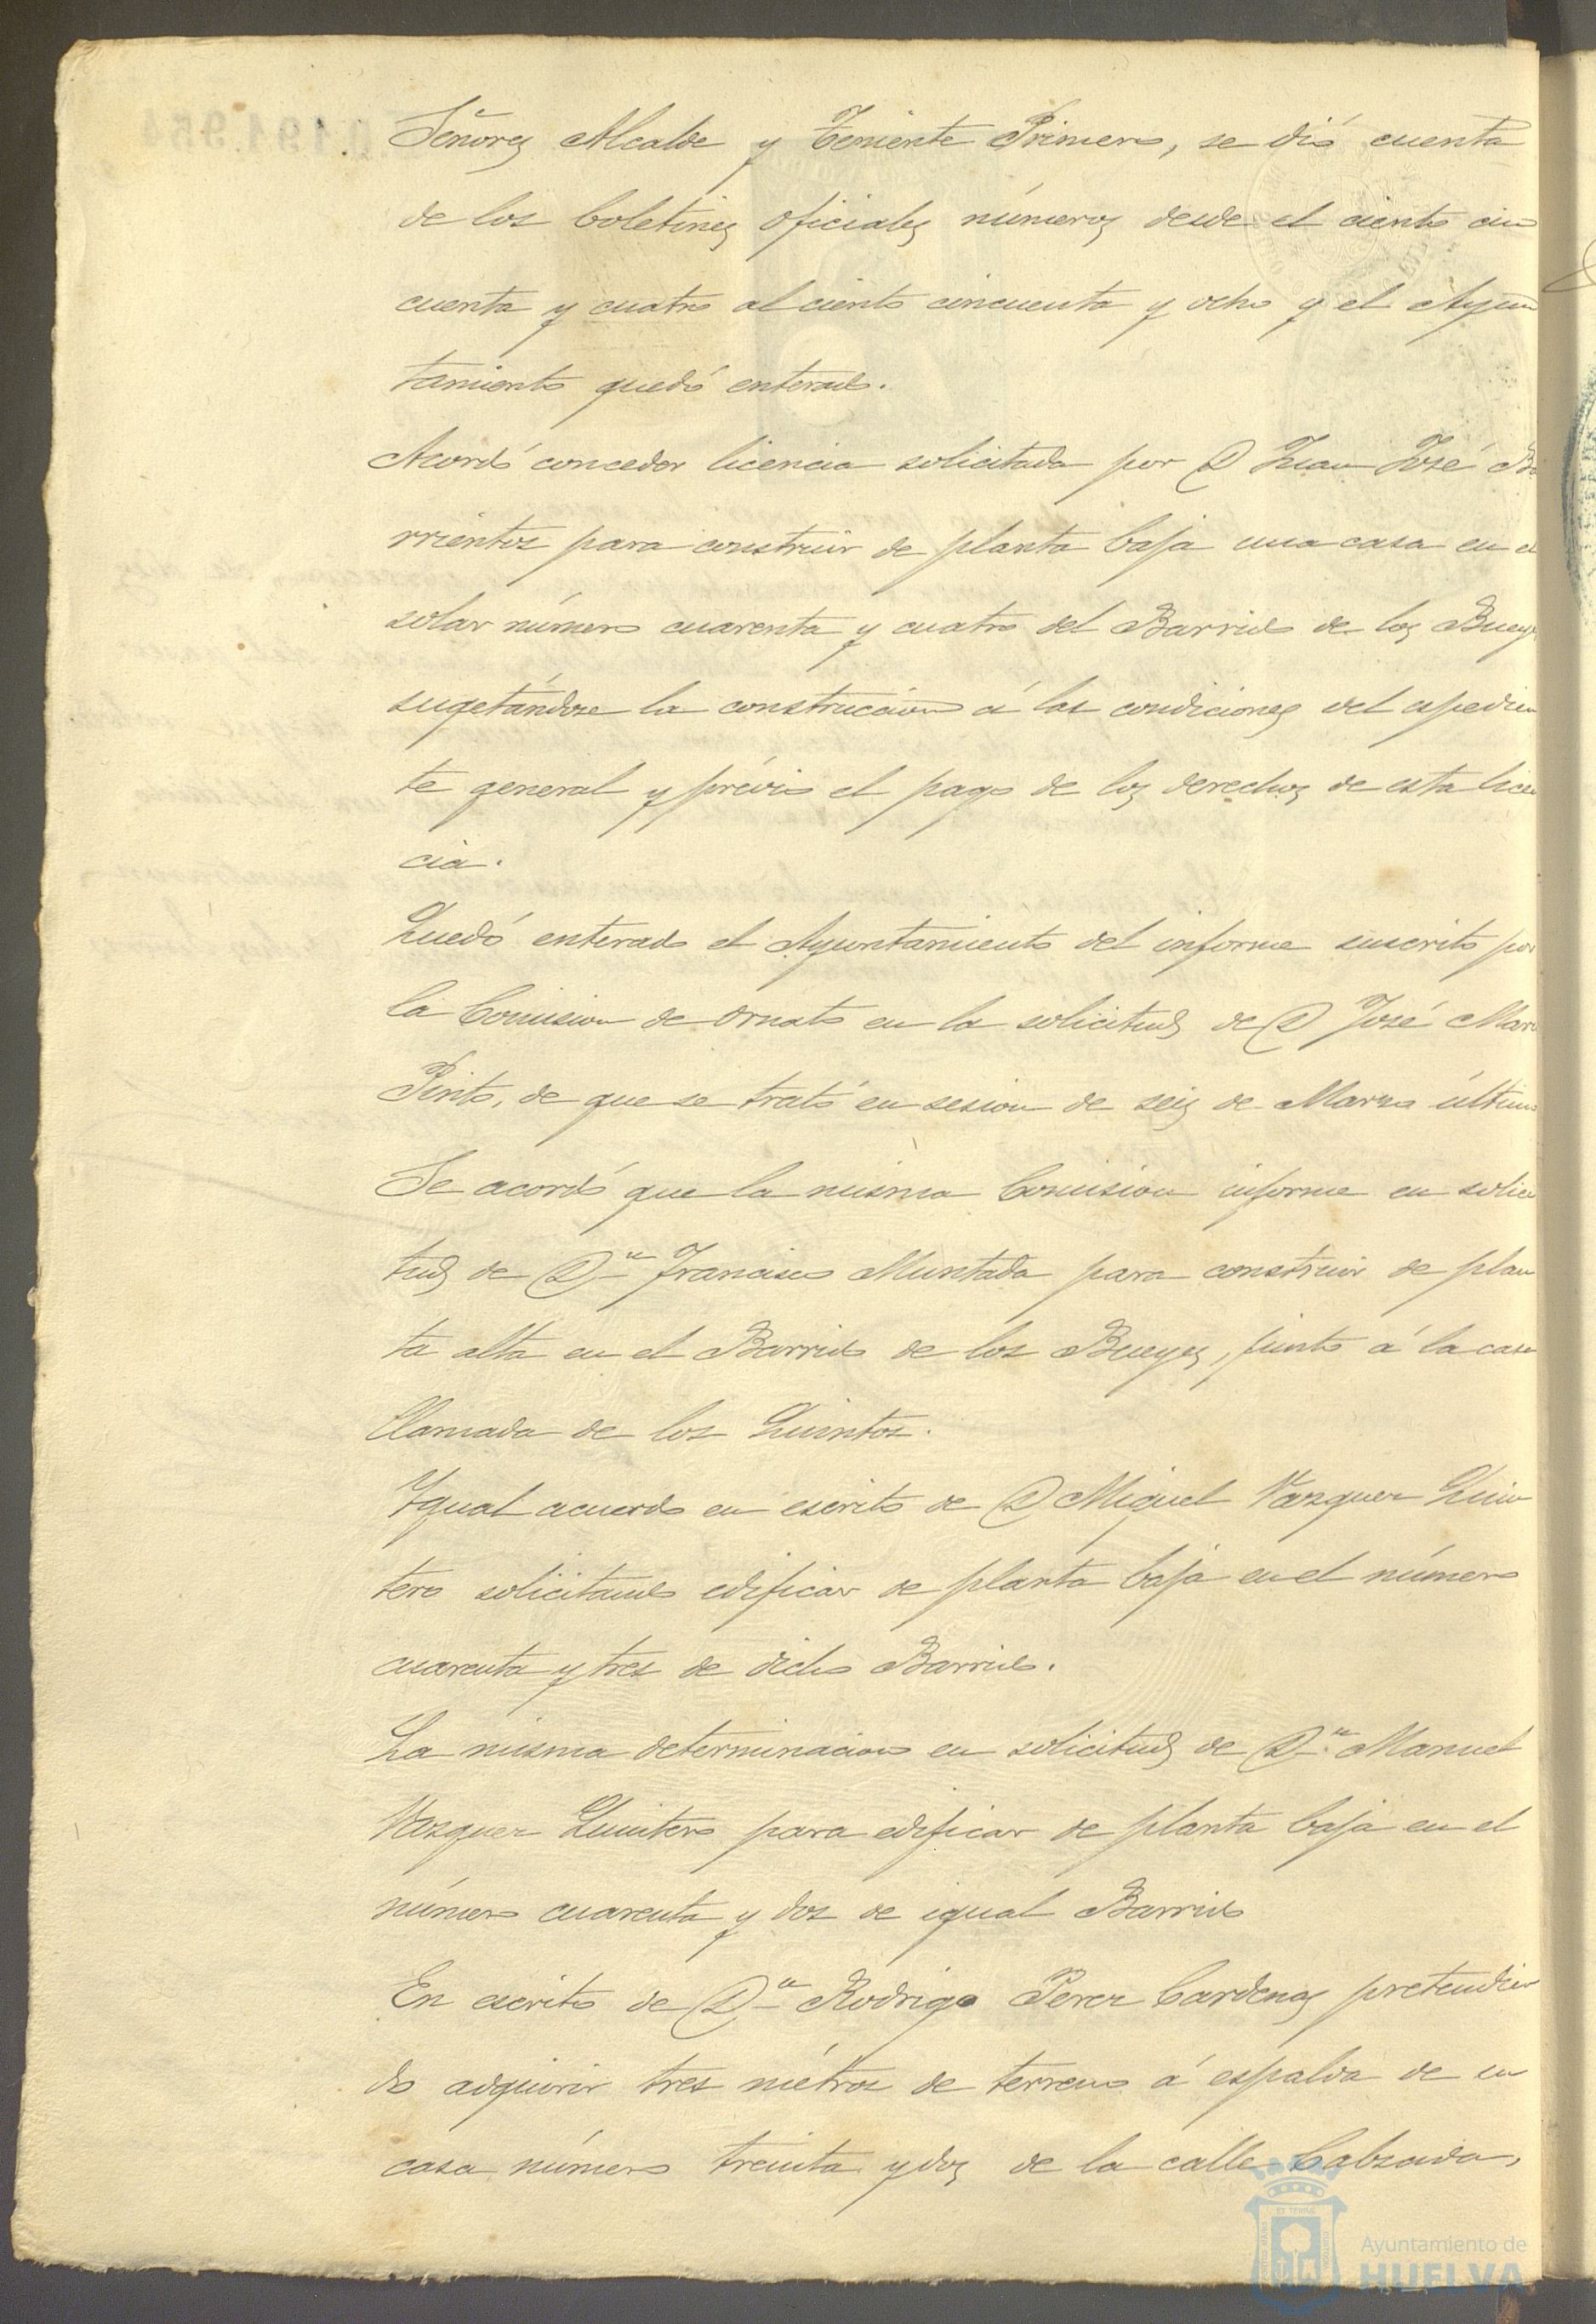 Señores Alcalde y Teniente Primero, se dió cuenta
de los boletines oficiales números desde el ciento cin
cuenta y cuatro al ciento cincuenta y ocho y el Ayun
tamiento quedó enterado.
Acordó conceder licencia solicitada por D Juan José Ba
rrientos para construir de planta baja una casa en el
solar número cuarenta y cuatro del Barrio de los Bueyes
sugetándose la construccion á las condiciones del espedien
te general y prévio el pago de los derechos de esta licen
cia.
Quedó enterado el Ayuntamiento del informe suscrito por
la Comision de ornato en la solicitud de D José Maria
Pinto, de que se trató en sesion de seis de Marzo último
Se acordó que la misma Comision informe en solici
tud de Dn Francisco Muntada para construir de plan
ta alta en el Barrio de los Bueyes, junto á la casa
llamada de los Quintos.
Igual acuerdo en escrito de D Miguel Vazquez Quin
tero solicitando edificar de planta baja en el número
cuarenta y tres de dicho Barrio.
La misma determinacion en solicitud de Dn Manuel
Vazquez Quintero para edificar de planta baja en el
número cuarenta y dos de igual Barrio
En escrito de Dn Rodrigo Perez Cardenas pretendien
do adquirir tres métros de terreno á espalda de su
casa número treinta y dos de la calle Calzada,
Ayuntamiento de
HUELVA